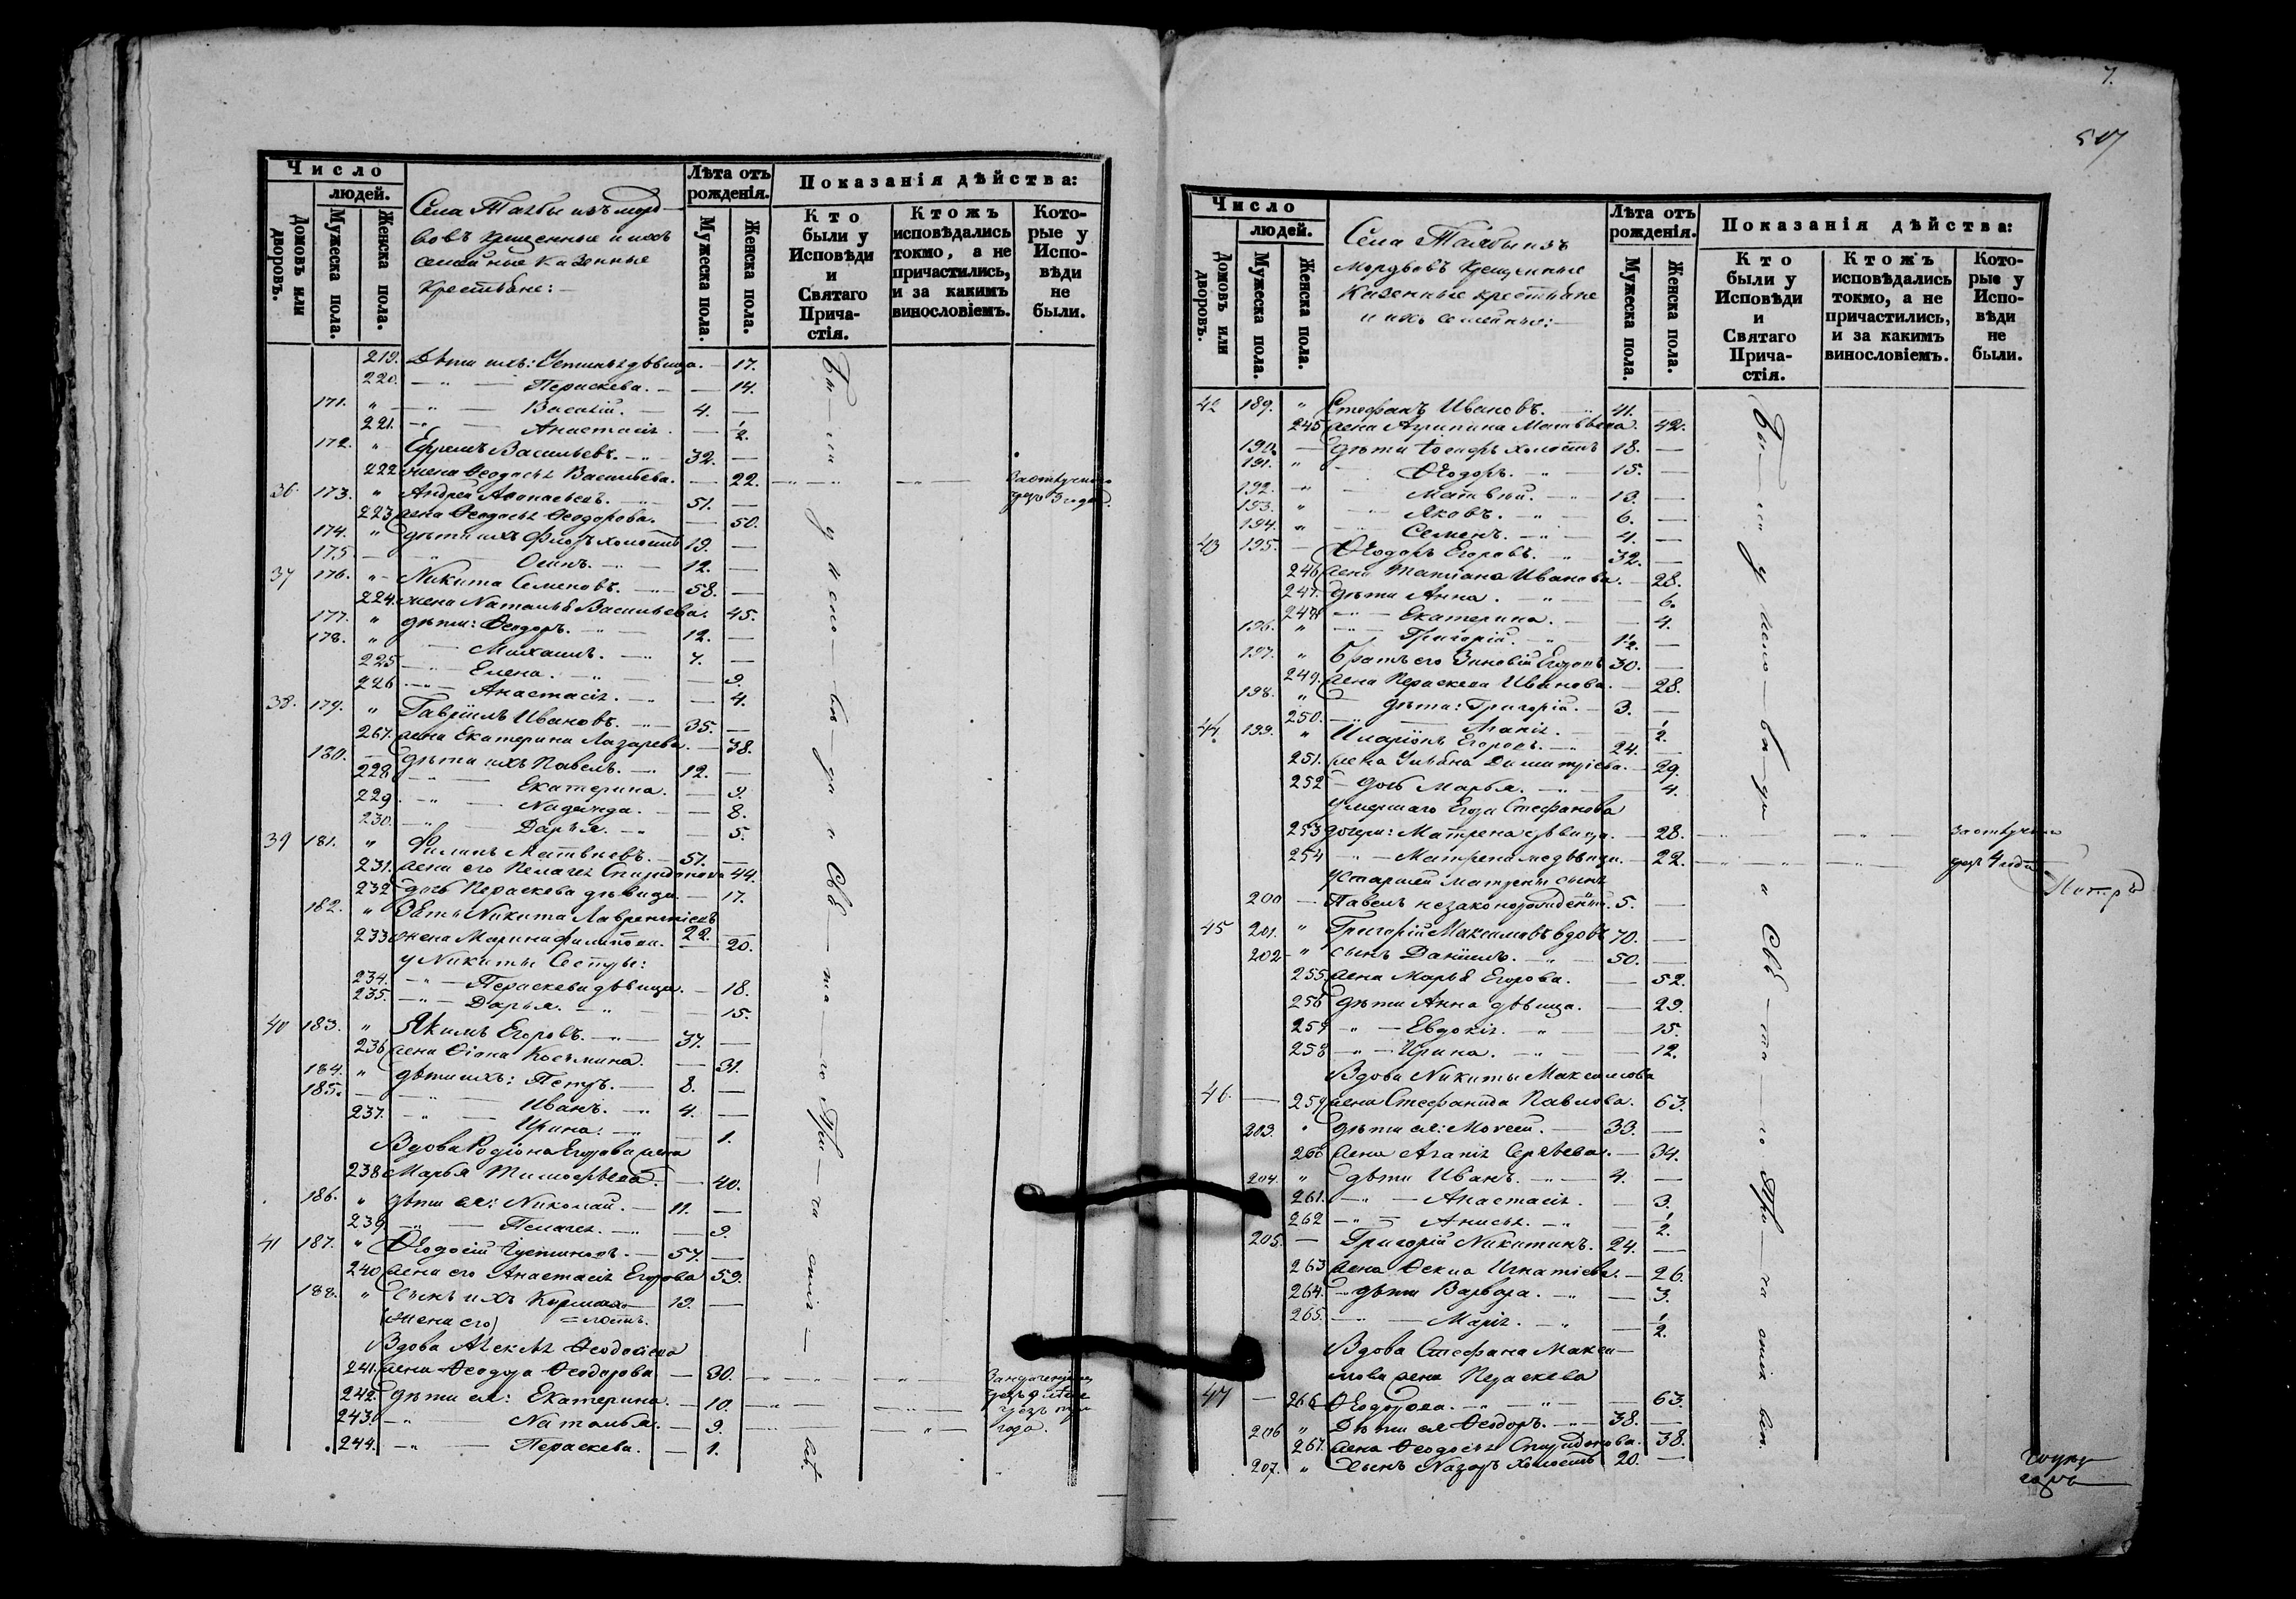 Число
людей.
Домовъ или дворовъ.
Мужеска пола.
Женска пола.
Села Талбы изъ морд-
вовъ крещенные и ихъ
семейные казенные
крестьяне:-
Лѣта отъ рожденія.
Мужеска пола.
Женска пола.
Показанія дѣйства:
Кто были у Исповѣди и Святаго Прича-стія.
Ктожъ исповѣдались токмо, а не причастились, и за какимъ винословіемъ.
Кото-рые у Испо-вѣди не были.
219. Дѣти ихъ: Устинья дѣвица. — 17.
220. — " — Пераскева. — — 14.
171. " — " — Василій. — 4. —
221. — " — Анастасія. — 1/2.
172. " Ефремъ Васильевъ. — " — 32. —
222 жена Ѳеодосья Васильева. — 22.
36 173. " Андрей — " — 51. —
223 жена Ѳеодосья Ѳеодорова. — 50.
174. " дѣти ихъ Флоръ холостъ 19. —
175. — " — Осипъ. — " — 12. —
37 176. " — Никита Семеновъ. — " — 58. —
224. жена Наталья Васильева. 45.
177. " дѣти: Ѳеодоръ. — " — 12. —
178. " — Михаилъ. — " 7. —
225 — " — Елена. — " — 9.
226. — " — Анастасія. — " — 4.
38. 179. " Гавріилъ Ивановъ. — " — 35. —
267. жена Екатерина Лазарева. — 38.
180. — дѣти ихъ Павелъ. — " 12. —
228 — " — Екатерина. — 9.
229. — " — Надежда. — — 8.
230. — " — Дарья. — " — 5.
39 181. " Филипъ Матвѣевъ. — 51. —
231. жена его Пелагея Спиридонова 44.
232 дочь Пераскева дѣвица. — 17.
182. " Зять Никита Лаврентіевъ 22. —
233 жена Марина Филипова. — 20.
у Никиты Сестры:
234. — " — Пераскева дѣвица. — 18.
235. — " — Дарья. — " — 15.
40 183. " Якимъ Егоровъ. — " — 37. —
236 жена Ѳіона Космина. — 31.
184. " дѣти ихъ: Петръ. — 8. —
185. — " — Иванъ. — " 4. —
237. — " — Ирина. — " — 1.
Вдова Родіона Егорова жена
238 Марья Тимофѣева. — 40.
186. " дѣти ея: Николай. — 11. —
239 — " — Пелагея. — " — 9.
41 187. " Ѳеодосій Густиновъ. — 57. —
240 жена его Анастасія Егорова 59.
188. " Сынъ ихъ — 19. —
(жена его)
Вдова Алексѣя Ѳеодосіева
241. жена Ѳеодора Ѳеодорова — 30.
242. дѣти ея: Екатерина. — 10.
243. — " — Наталья. — 9.
244. — " — Пераскева. — 1.
Бы — ли у испо — вѣ — ди и Свя — та — го При — ча — стія — всѣ.
7.
507
Число
людей.
Домовъ или дворовъ.
Мужеска пола.
Женска пола.
Села Талбы изъ
Мордвовъ крещенные
казенные крестьяне
и ихъ семейные:-
Лѣта отъ рожденія.
Мужеска пола.
Женска пола.
Показанія дѣйства:
Кто были у Исповѣди и Святаго Прича-стія.
Ктожъ исповѣдались токмо, а не причастились, и за какимъ винословіемъ.
Кото-рые у Испо-вѣди не были.
42 189. " Стефанъ Ивановъ. — 41. —
245 жена Агрипина Матвѣева. 42.
190. — дѣти Іосифъ холостъ 18. —
191. " — Ѳеодоръ. — " — 15. —
192. — " — Матвѣй. — " — 13. —
193. " — Яковъ. — " — 6. —
194. " — Семенъ. — " — 4. —
43 195. — Ѳеодоръ Егоровъ. — " 32. —
246 жена Татіана Иванова. — 28.
247. дѣти Анна. — " — 6.
248 — " — Екатерина. — — 4.
196. " — " — Григорій. — " — 1 1/2. —
197. " братъ его Зиновій Егоровъ 30. —
249. жена Пераскева Иванова. — 28.
198. " — дѣти: Григорій. — 3. —
250. — " — Агапія. — 1/2.
44 199. " Иларіонъ Егоровъ. — " 24. —
251. жена Ульяна Димитріева. — 29.
252 — дочь Марья. — " — 4.
умершаго Егора Стефанова
253 дочери: Матрена дѣвица. — 28.
254 — " — Матрена дѣвица. — 22.
у старшей Матрены сынъ
200 — Павелъ незаконорожденный. 5. —
45 201. " Григорій Максимовъ вдовъ 70. —
202 " сынъ Даніилъ. — " — 50. —
255 жена Марья Егорова. — 52.
256 дѣти Анна дѣвица. — 29.
257 — " — Евдокія. — " — 15.
258 — " — Ирина. — " — 12.
Вдова Никиты Максимова
46. — 259 жена Стефанида Павлова. 63.
203. " дѣти ея: Моисей. — 33. —
260 жена Агапія Сергѣева. — 34.
204. " дѣти Иванъ. — " — 4. —
261. — " — Анастасія. — 3.
262 — " — Анисья. — " — 1/2.
205. — Григорій Никитинъ. 24. —
263 жена Ѳекла Игнатіева. — 26.
264. — дѣти Варвара. — " — 3.
265. — " — Марія. — " — 1/2.
Вдова Стефана Макси—
мова жена Пераскева
47 — 266 Ѳеодорова. — " — " — 63.
206 " Дѣти ея Ѳеодоръ. — " — 38. —
267. жена Ѳеодосья Спиридонова. 38.
207. " Сынъ Назаръ холостъ 20. —
Бы — ли у испо — вѣ — ди и Свя — та — го При — ча — стія всѣ.